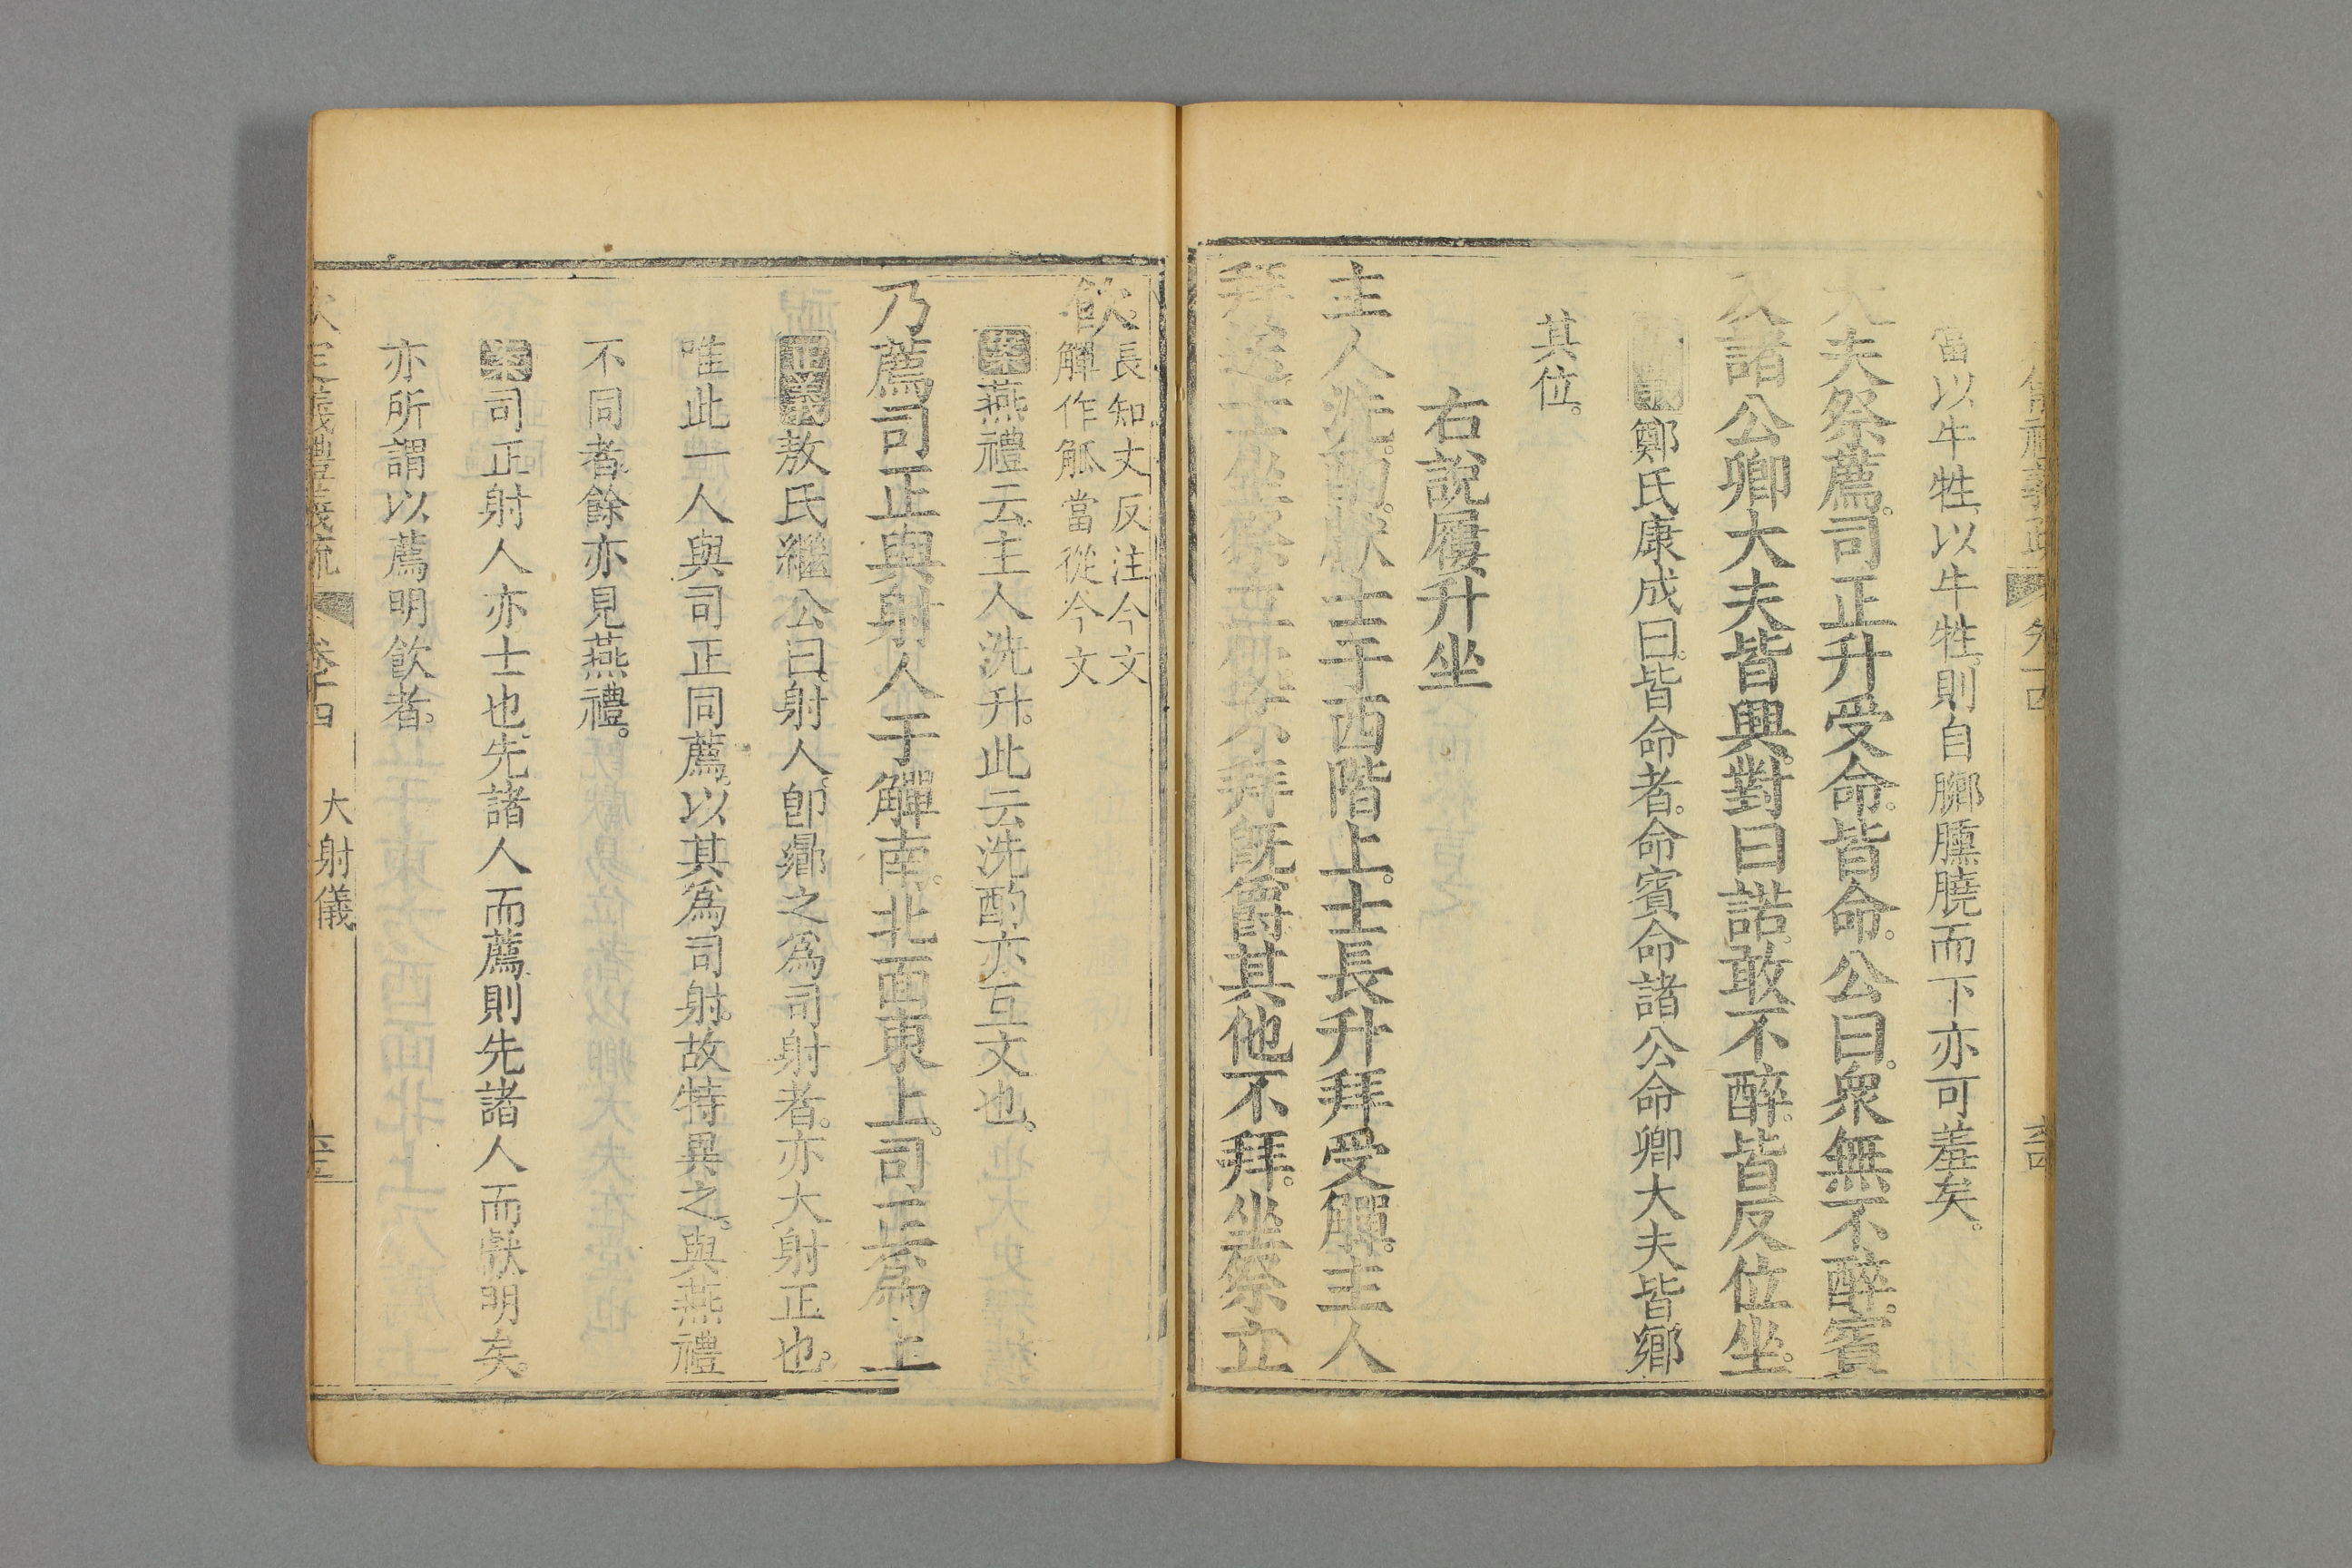 當以牛牲以牛牲則自臅臐膮而下亦可羞矣。
大夫祭薦。司正升受命。皆命。公曰。衆無不醉。賓
及諸公卿大夫皆興。對曰諾。敢不醉。皆反位坐。
鄭氏康成曰。皆命者。命賓命諸公命卿大夫皆鄉
其位。
右說屨升坐
主人洗酌。獻士于西階上。士長升拜受觶。主人
拜送。士坐祭立飲不拜既爵其他不拜。坐祭立
飲。長知丈反注今文
觶作觚當從今文
案燕禮云。主人洗升。此云洗酌亦互文也。
乃薦司正與射人于觶南。北面東上。司正爲上
正義敖氏繼公曰。射人。卽曏之爲司射者。亦大射正也。
唯此一人與司正同薦。以其爲司射。故特異之。與燕禮
不同者。餘亦見燕禮。
案司正射人亦士也。先諸人而薦則先諸人而獻明矣。
亦所謂以薦明飲者。
欽定義禮義疏 卷十四 大射儀